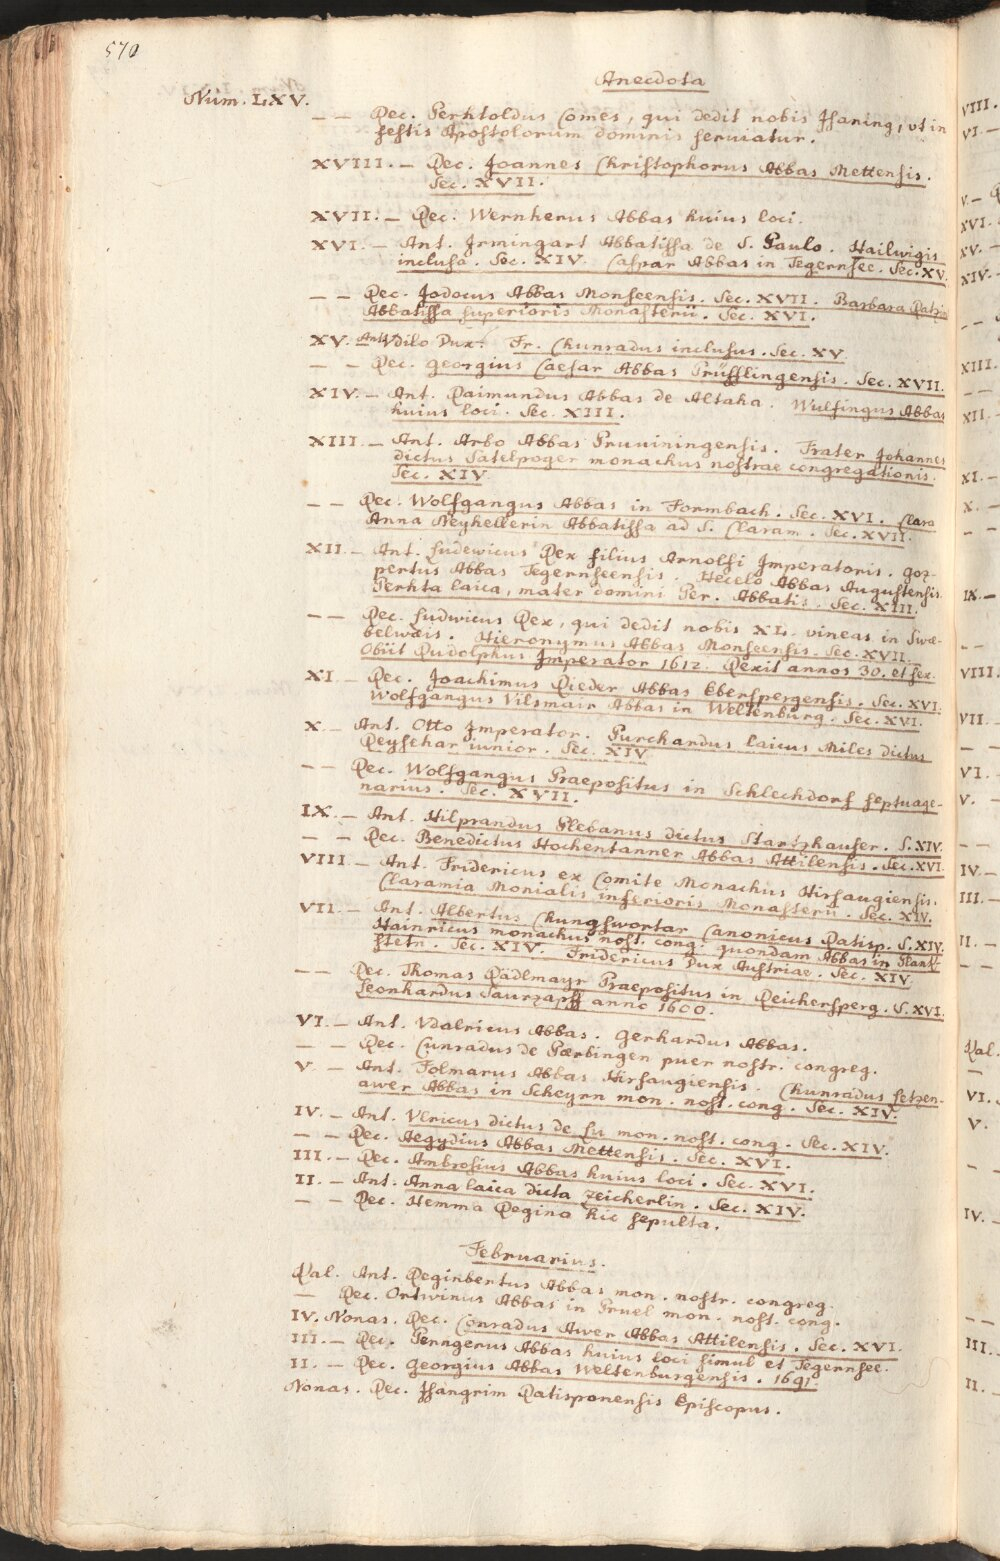 570
Anecdota
Num. LXV.
– – Rec. Perhtoldus Comes, qui dedit nobis Isaning, ut in
festis Apostolorum dominis seruiatur.
XVIII. – Rec. Joannes Christophorus Abbas Mettensis.
Sec. XVII.
XVII. – Rec. Wernherus Abbas huius loci.
XVI. – Ant. Irmingart Abbatissa de S. Paulo. Hailwigis
inclusa. Sec. XIV. Caspar Abbas in Tegernsee. Sec. XV.
– – Rec. Jodocus Abbas Monseensis. Sec. XVII. Barbara
Abbatissa superioris Monasterii. Sec. XVI.
XV. Ant. Vdilo Dux. Fr. Chunradus inclusus. Sec. XV.
– – Rec. Georgius Caesar Abbas Prüfflingensis. Sec. XVII.
XIV. – Ant. Raimundus Abbas de Altaha. Wulfingus Abbas
huius loci. Sec. XIII.
XIII. – Ant. Arbo Abbas Pruuiningensis. Frater Johannes
dictus Satelpoger monachus nostrae congregationis.
Sec. XIV.
– – Rec. Wolfgangus Abbas in Formbach. Sec. XVI. Clara
Anna Neyhellerin Abbatissa ad S. Claram. Sec. XVII.
XII. – Ant. Ludewicus Rex filius Arnolfi Imperatoris. Goz-
pertus Abbas Tegernseensis. Hecelo Abbas Augustensis.
Perhta laica, mater domini Per. Abbatis. Sec. XIII.
– – Rec. Ludwicus Rex, qui dedit nobis XL. vineas in Swæ-
belwæis. Hieronymus Abbas Monseensis. Sec. XVII.
Obiit Rudolphus Imperator 1612. Rexit annos 30. et sex.
XI. – Rec. Joachimus Rieder Abbas Eberspergensis. Sec. XVI.
Wolfgangus Vilsmair Abbas in Weltenburg. Sec. XVI.
X. – Ant. Otto Imperator. Purchardus laicus Miles dictus
Reysehar iunior. Sec. XIV.
– – Rec. Wolfgangus Praepositus in Schlechdorf septuage-
narius. Sec. XVII.
IX. – Ant. Hilprandus Plebanus dictus Startzhauser. S. XIV.
– – Rec. Benedictus Hochentanner Abbas Attilensis. Sec. XVI.
VIII. – Ant. Fridericus ex Comite Monachus Hirsaugiensis.
Claramia Monialis inferioris Monasterii. Sec. XIV.
VII. – Ant. Albertus Chungswortar Canonicus Ratisp. S. XIV.
Hainricus monachus nost. cong. quondam Abbas in Plank-
stetn. Sec. XIV. Fridericus Dux Austriae. Sec. XIV.
– – Rec. Thomas Rädlmayr Praepositus in Reichersperg. S. XVI.
Leonhardus Saurzapff anno 1600.
VI. – Ant. Vdalricus Abbas. Gerhardus Abbas.
– – Rec. Cunradus de Pærbingen puer nostr. congreg.
V. – Ant. Folmarus Abbas Hirsaugiensis. Chunradus Setzen-
awer Abbas in Scheyrn mon. nost. cong. Sec. XIV.
IV. – Ant. Vlricus dictus de Lu mon. nost. cong. Sec. XIV.
– – Rec. Aegydius Abbas Mettensis. Sec. XVI.
III. – Rec. Ambrosius Abbas huius loci. Sec. XVI.
II. – Ant. Anna laica dicta Zeicherlin. Sec. XIV.
– – Rec. Hemma Regina hic sepulta.
Februarius.
Kal. Ant. Reginbertus Abbas mon. nostr. congreg.
– Rec. Ortwinus Abbas in Pruel mon. nost. cong.
IV. Nonas. Rec. Conradus Awer Abbas Attilensis. Sec. XVI.
III. – Rec. Perngerus Abbas huius loci simul et Tegernsee.
II. – Rec. Georgius Abbas Weltenburgensis. 1691.
Nonas. Rec. Isangrim Ratisponensis Episcopus.
VIII.
VI. –
V. –
XVI.
XV. –
XIV. –
XIII.
XII. –
XI. –
X. –
IX. –
VIII.
VII. –
VI. –
V. –
IV. –
III. –
II. –
Kal.
VI.
V.
IV. –
III.
II. –